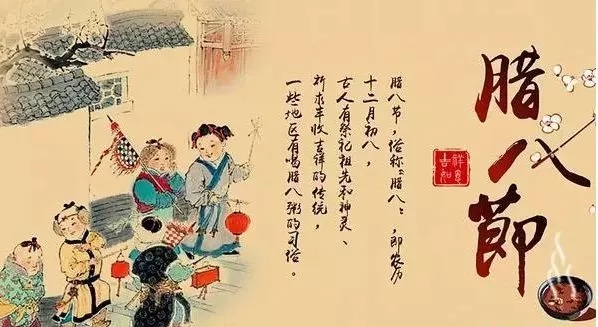 腊八節
吉祥
如意
腊八节，俗称“腊八”，即农历
十二月初八，
古人有祭祀祖先和神灵、
祈求丰收吉祥的传统，
一些地区有喝腊八粥的习俗。